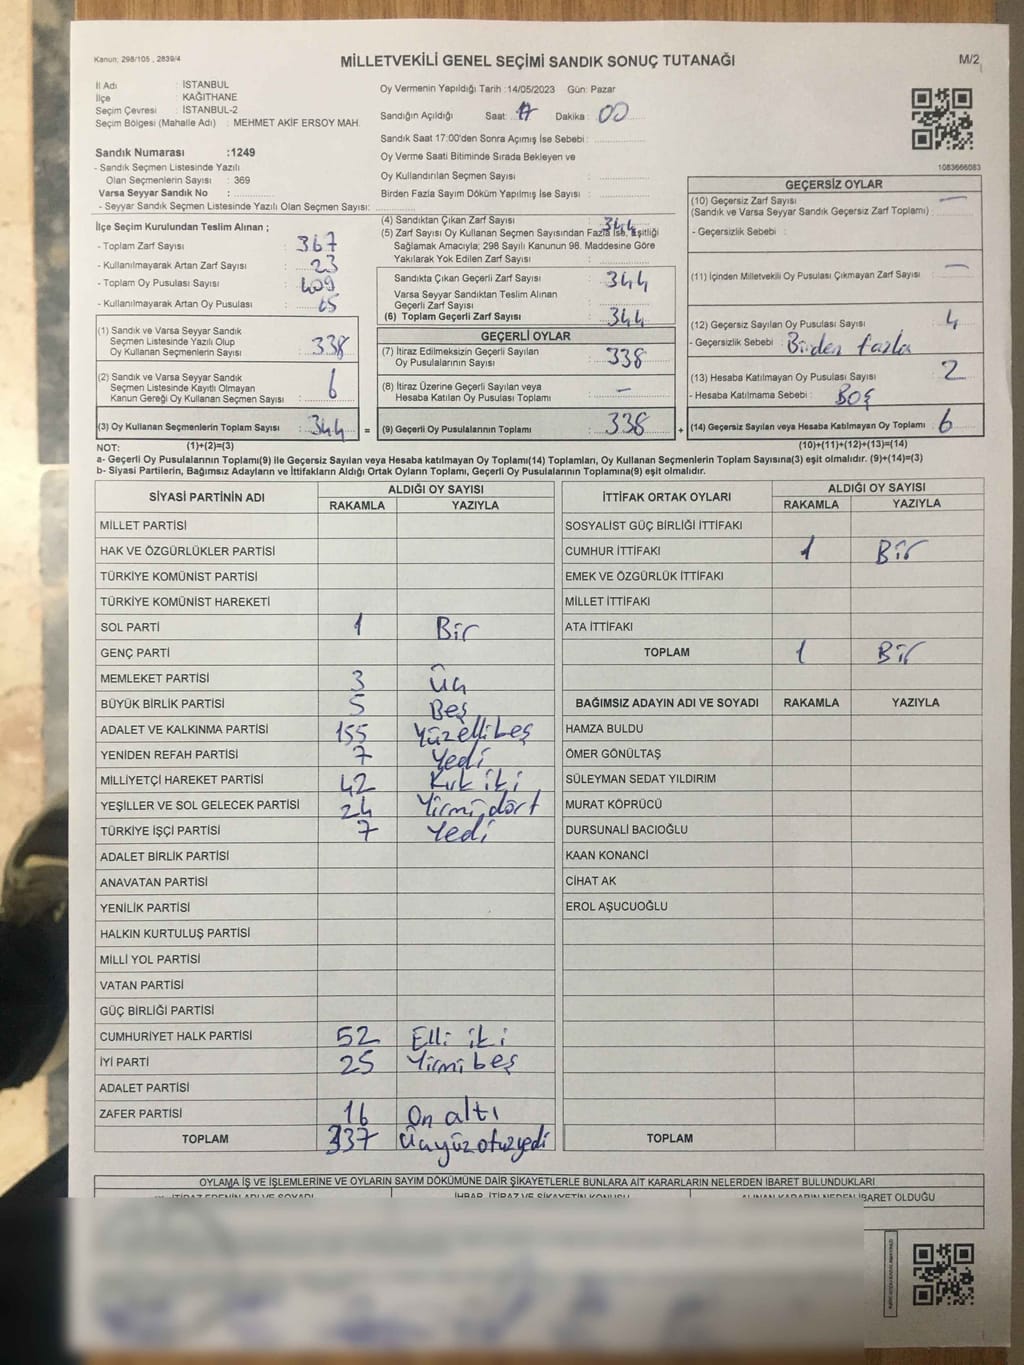 Kanun: 298/105 , 2839/4
MİLLETVEKİLİ GENEL SEÇİMİ SANDIK SONUÇ TUTANAĞI
M/2
İl Adı : İSTANBUL
İlçe : KAĞITHANE
Seçim Çevresi : İSTANBUL-2
Seçim Bölgesi (Mahalle Adı) : MEHMET AKİF ERSOY MAH.
Sandık Numarası :1249
- Sandık Seçmen Listesinde Yazılı
Olan Seçmenlerin Sayısı : 369
Varsa Seyyar Sandık No :
- Seyyar Sandık Seçmen Listesinde Yazılı Olan Seçmen Sayısı:
Oy Vermenin Yapıldığı Tarih :14/05/2023 Gün: Pazar
Sandığın Açıldığı Saat: 17 Dakika : 00
Sandık Saat 17:00'den Sonra Açımış İse Sebebi :
Oy Verme Saati Bitiminde Sırada Bekleyen ve
Oy Kullandırılan Seçmen Sayısı :
Birden Fazla Sayım Döküm Yapılmış İse Sayısı :
1083666083
İlçe Seçim Kurulundan Teslim Alınan ;
- Toplam Zarf Sayısı : 367
- Kullanılmayarak Artan Zarf Sayısı : 23
- Toplam Oy Pusulası Sayısı : 409
- Kullanılmayarak Artan Oy Pusulası : 65
(1) Sandık ve Varsa Seyyar Sandık
Seçmen Listesinde Yazılı Olup
Oy Kullanan Seçmenlerin Sayısı : 338
(2) Sandık ve Varsa Seyyar Sandık
Seçmen Listesinde Kayıtlı Olmayan
Kanun Gereği Oy Kullanan Seçmen Sayısı : 6
(3) Oy Kullanan Seçmenlerin Toplam Sayısı : 344 =
(4) Sandıktan Çıkan Zarf Sayısı : 344
(5) Zarf Sayısı Oy Kullanan Seçmen Sayısından Fazla İse, Eşitliği
Sağlamak Amacıyla; 298 Sayılı Kanunun 98. Maddesine Göre
Yakılarak Yok Edilen Zarf Sayısı :
Sandıkta Çıkan Geçerli Zarf Sayısı : 344
Varsa Seyyar Sandıktan Teslim Alınan
Geçerli Zarf Sayısı :
(6) Toplam Geçerli Zarf Sayısı : 344
GEÇERLİ OYLAR
(7) İtiraz Edilmeksizin Geçerli Sayılan
Oy Pusulalarının Sayısı : 338
(8) İtiraz Üzerine Geçerli Sayılan veya
Hesaba Katılan Oy Pusulası Toplamı : —
(9) Geçerli Oy Pusulalarının Toplamı : 338 +
GEÇERSİZ OYLAR
(10) Geçersiz Zarf Sayısı : —
(Sandık ve Varsa Seyyar Sandık Geçersiz Zarf Toplamı) :
- Geçersizlik Sebebi :
(11) İçinden Milletvekili Oy Pusulası Çıkmayan Zarf Sayısı : —
(12) Geçersiz Sayılan Oy Pusulası Sayısı : 4
- Geçersizlik Sebebi : Birden fazla
(13) Hesaba Katılmayan Oy Pusulası Sayısı : 2
- Hesaba Katılmama Sebebi : Boş
(14) Geçersiz Sayılan veya Hesaba Katılmayan Oy Toplamı : 6
NOT: (1)+(2)=(3) (10)+(11)+(12)+(13)=(14)
a- Geçerli Oy Pusulalarının Toplamı(9) ile Geçersiz Sayılan veya Hesaba katılmayan Oy Toplamı(14) Toplamları, Oy Kullanan Seçmenlerin Toplam Sayısına(3) eşit olmalıdır. (9)+(14)=(3)
b- Siyasi Partilerin, Bağımsız Adayların ve İttifakların Aldığı Ortak Oyların Toplamı, Geçerli Oy Pusulalarının Toplamına(9) eşit olmalıdır.
SİYASİ PARTİNİN ADI ALDIĞI OY SAYISI
RAKAMLA YAZIYLA
MİLLET PARTİSİ
HAK VE ÖZGÜRLÜKLER PARTİSİ
TÜRKİYE KOMÜNİST PARTİSİ
TÜRKİYE KOMÜNİST HAREKETİ
SOL PARTİ 1 Bir
GENÇ PARTİ
MEMLEKET PARTİSİ 3 Üç
BÜYÜK BİRLİK PARTİSİ 5 Beş
ADALET VE KALKINMA PARTİSİ 155 Yüzellibeş
YENİDEN REFAH PARTİSİ 7 Yedi
MİLLİYETÇİ HAREKET PARTİSİ 42 Kırk iki
YEŞİLLER VE SOL GELECEK PARTİSİ 24 Yirmi dört
TÜRKİYE İŞÇİ PARTİSİ 7 Yedi
ADALET BİRLİK PARTİSİ
ANAVATAN PARTİSİ
YENİLİK PARTİSİ
HALKIN KURTULUŞ PARTİSİ
MİLLİ YOL PARTİSİ
VATAN PARTİSİ
GÜÇ BİRLİĞİ PARTİSİ
CUMHURİYET HALK PARTİSİ 52 Elli iki
İYİ PARTİ 25 Yirmi beş
ADALET PARTİSİ
ZAFER PARTİSİ 16 On altı
TOPLAM 337 Üçyüzotuzyedi
İTTİFAK ORTAK OYLARI ALDIĞI OY SAYISI
RAKAMLA YAZIYLA
SOSYALİST GÜÇ BİRLİĞİ İTTİFAKI
CUMHUR İTTİFAKI 1 Bir
EMEK VE ÖZGÜRLÜK İTTİFAKI
MİLLET İTTİFAKI
ATA İTTİFAKI
TOPLAM 1 Bir
BAĞIMSIZ ADAYIN ADI VE SOYADI RAKAMLA YAZIYLA
HAMZA BULDU
ÖMER GÖNÜLTAŞ
SÜLEYMAN SEDAT YILDIRIM
MURAT KÖPRÜCÜ
DURSUNALİ BACIOĞLU
KAAN KONANCİ
CİHAT AK
EROL AŞUCUOĞLU
TOPLAM
OYLAMA İŞ VE İŞLEMLERİNE VE OYLARIN SAYIM DÖKÜMÜNE DAİR ŞİKAYETLERLE BUNLARA AİT KARARLARIN NELERDEN İBARET BULUNDUKLARI
İTİRAZ EDENİN ADI VE SOYADI İHBAR, İTİRAZ VE ŞİKAYETİN KONUSU ALINAN KARARIN NEDEN İBARET OLDUĞU